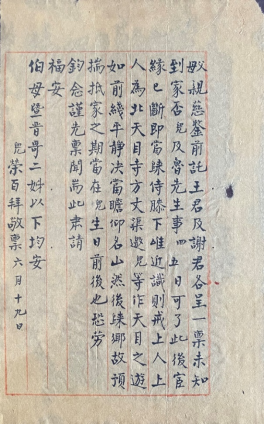 母親慈鑒前託王君及謝君各呈一稟未知
到家否兒及魯先生事四五日可了此後宦
緣已斷即當歸侍膝下唯近識則戒上人上
人為北天目寺方丈渠邀兒等作天目之遊
如前綫平靜決當瞻仰名山然後歸鄉故預
揣抵家之期當在兒生日前後也恐勞
鈞念謹先稟聞耑此肅請
福安
伯母暨晉哥二妹以下均安
兒榮百拜敬稟 六月十九日